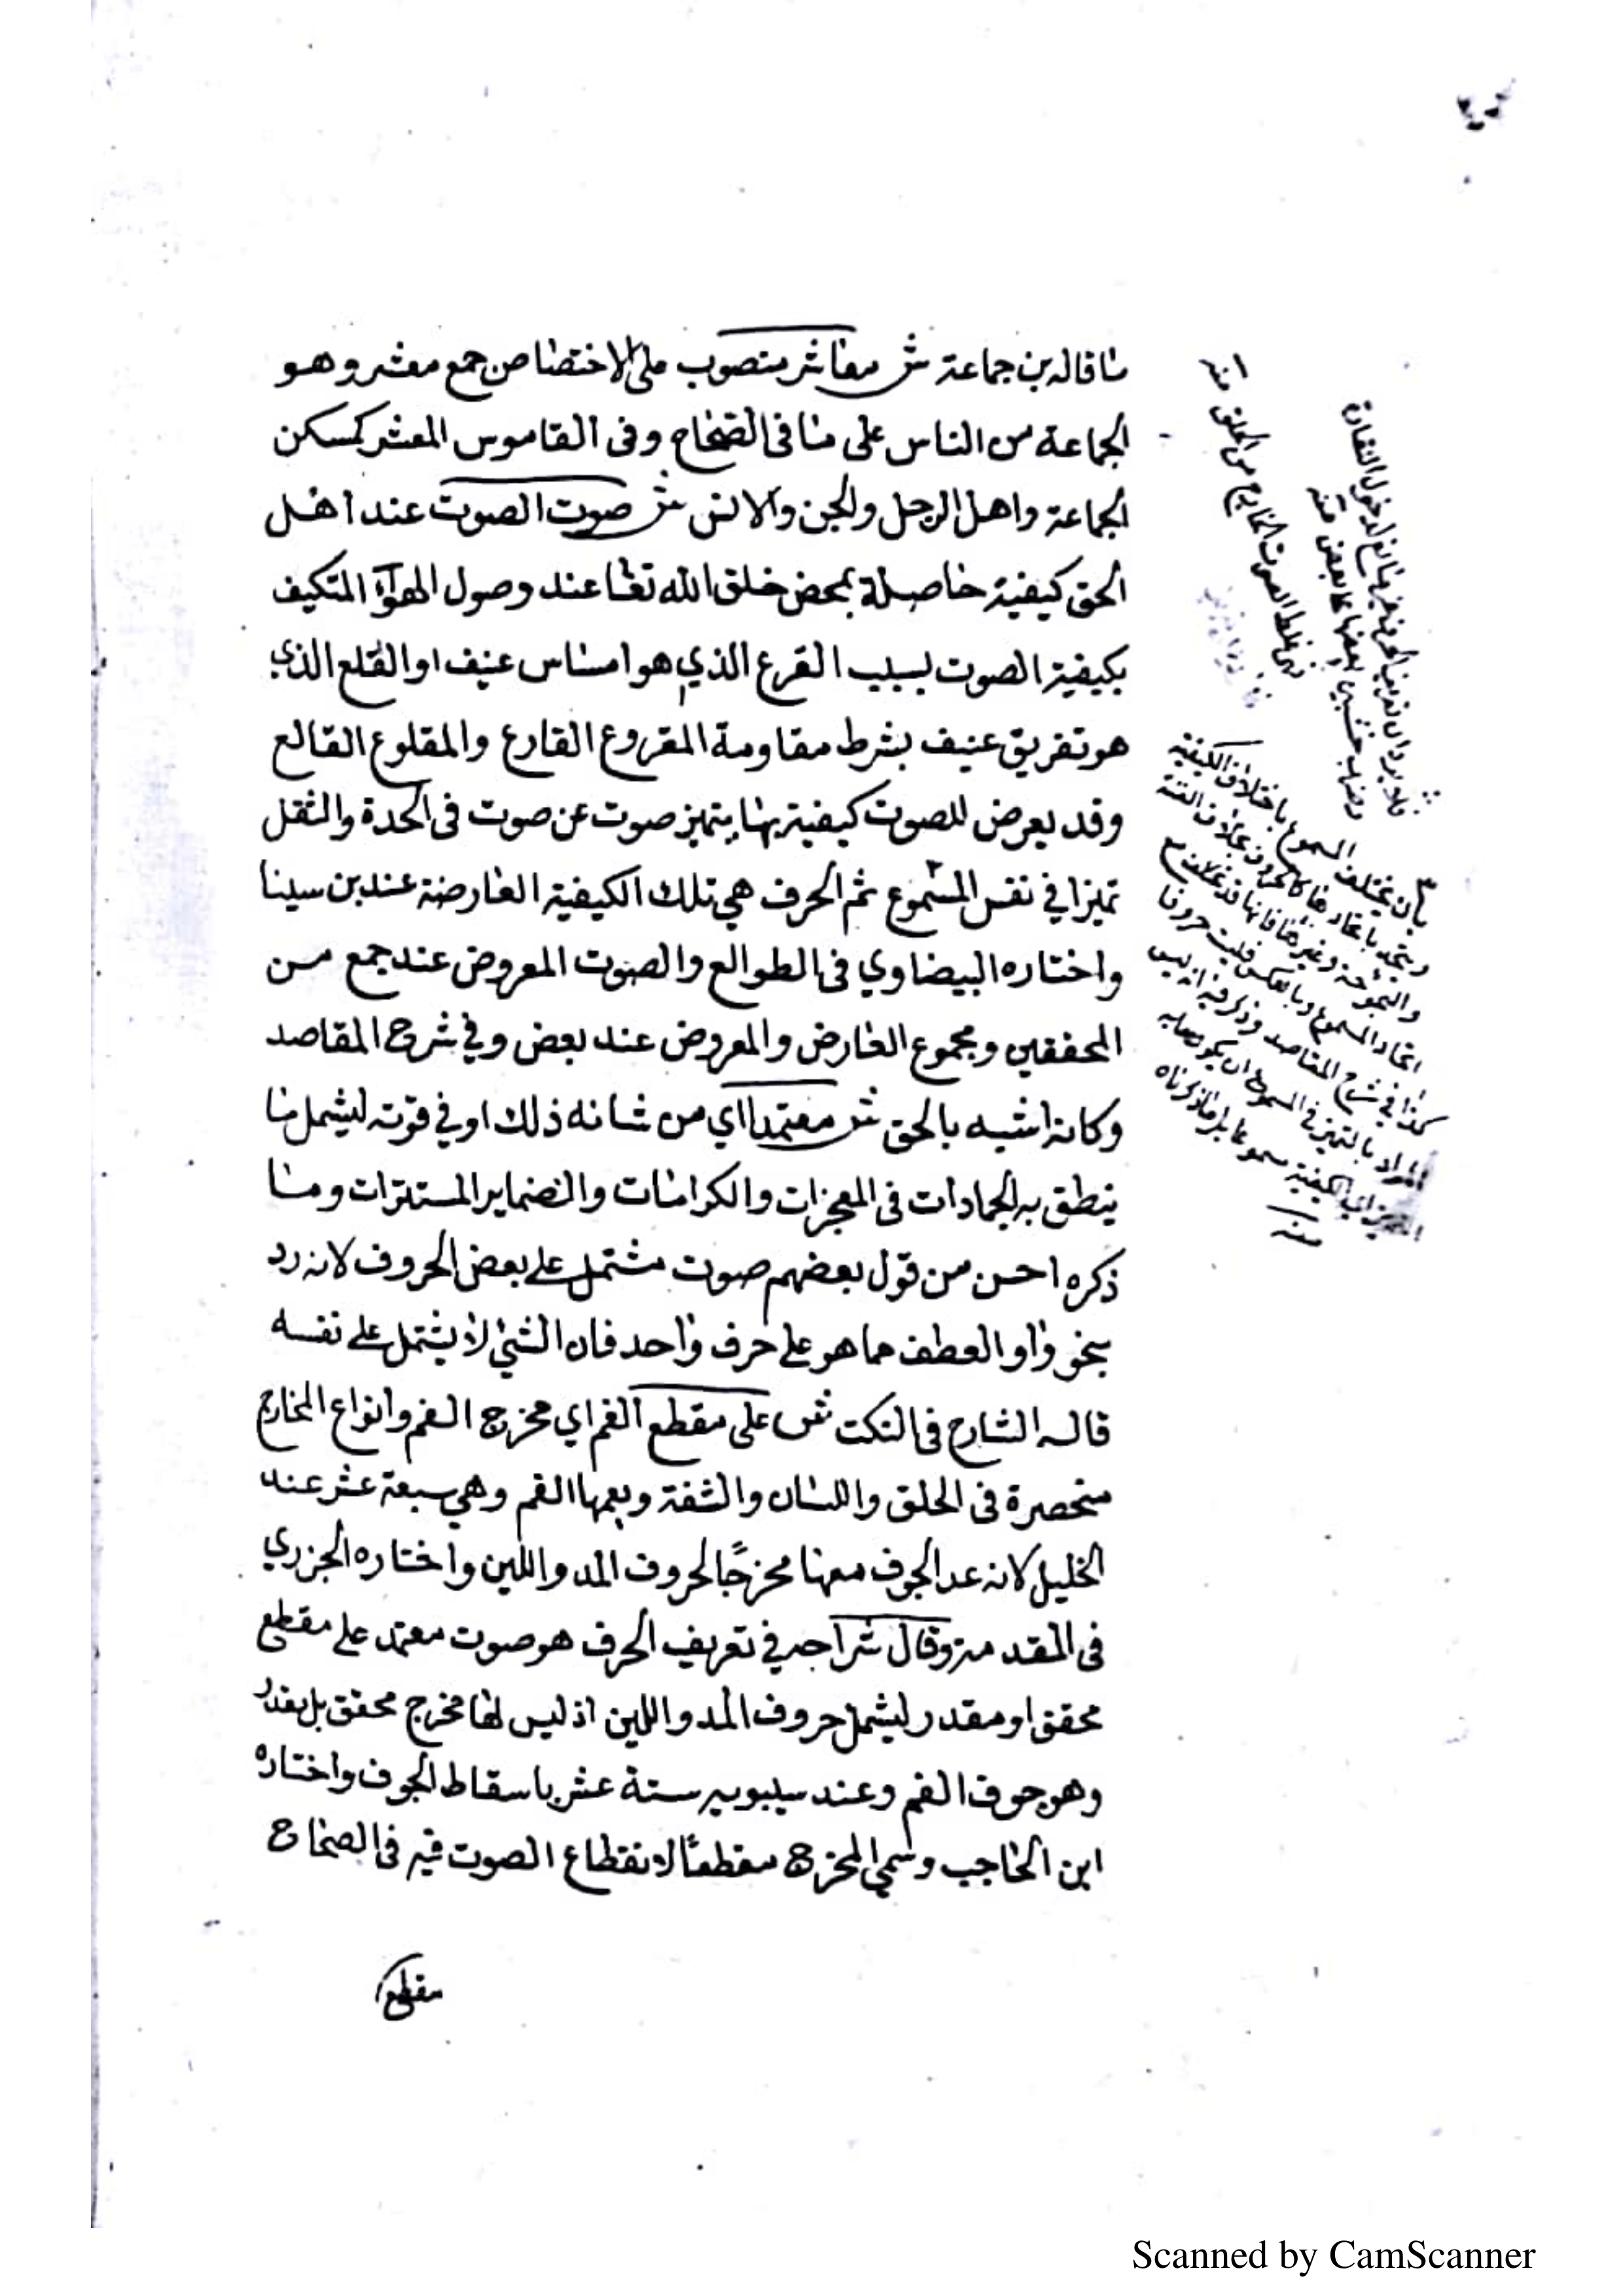 ما قاله بن جماعة ش معاشر منصوب على الاختصاص جمع معشر وهو
الجماعة من الناس على ما في الصحاح وفي القاموس المعشر كمسكن
الجماعة واهل الرجل والجن والانس ش صوت الصوت عند اهل
الحق كيفية حاصلة بمحض خلق الله تعا عند وصول الهوآء المتكيف
بكيفية الصوت بسبب القرع الذي هو امساس عنيف او القلع الذي
هو تفريق عنيف بشرط مقاومة المقروع القارع والمقلوع القالع
وقد يعرض للصوت كيفية بها يتميز صوت عن صوت في الحدة والثقل
تميزا في نفس المسموع ثم الحرف هي تلك الكيفية العارضة عند بن سينا
واختاره البيضاوي في الطوالع والصوت المعروض عند جمع من
المحققين ومجموع العارض والمعروض عند بعض وفي شرح المقاصد
وكانه اشبه بالحق ش معتمد اي من شانه ذلك او في قوته ليشمل ما
ينطق به الجمادات في المعجزات والكرامات والضماير المستترات وما
ذكره احسن من قول بعضهم صوت مشتمل على بعض الحروف لانه رد
بنحو واو العطف مما هو على حرف واحد فان الشئ لا يشتمل على نفسه
قاله الشارح في النكت ش على مقطع الفم اي مخرج الفم وانواع المخارج
منحصرة في الحلق واللسان والشفة ويعمها الفم وهي سبعة عشر عند
الخليل لانه عد الجوف معها مخرجًا لحروف المد واللين واختاره الجزري
في المقدمة وقال شراحه في تعريف الحرف هو صوت معتمد على مقطع
محقق او مقدر ليشمل حروف المد واللين اذ ليس لها مخرج محقق بل يقدر
وهو جوف الفم وعند سيبويه ستة عشر باسقاط الجوف واختاره
ابن الحاجب وسمي المخرج مقطعًا لانقطاع الصوت فيه في الصحاح
مقطع
من الحلق منه
بأن يختلف المسموع باختلاف الكيفية
ويتحد باتحادها كالحروف بخلاف الغنة
اتحاد المسموع وبالعكس فليست حروفا
كذا في شرح المقاصد وذكر فيه انه ليس
المراد بالتميز في المسموع ان يكون ما به
التميز اي الكيفية مسموعا بل ما ذكرناه
منه
Scanned by CamScanner